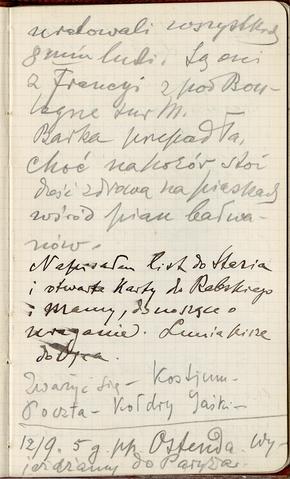 uratowali wszystkich
8miu ludzi. Są oni
z Francyi z pod Bou-
logne sur M. —
Barka przepadła,
choć na pozór stoi
dość zdrowa na piaskach
wśród pian bałwa-
nów. —
Napisałem list do Stasia
i otwarte karty do Rabskiego
i Mamy, donosząc o
uraganie. Lunia pisze
do Ojca.
Zważyć się — Kostjum —
Poczta — Kołdry Jaśki —
12/9. 5 g. pp. Ostenda. Wy-
jeżdżamy do Paryża.